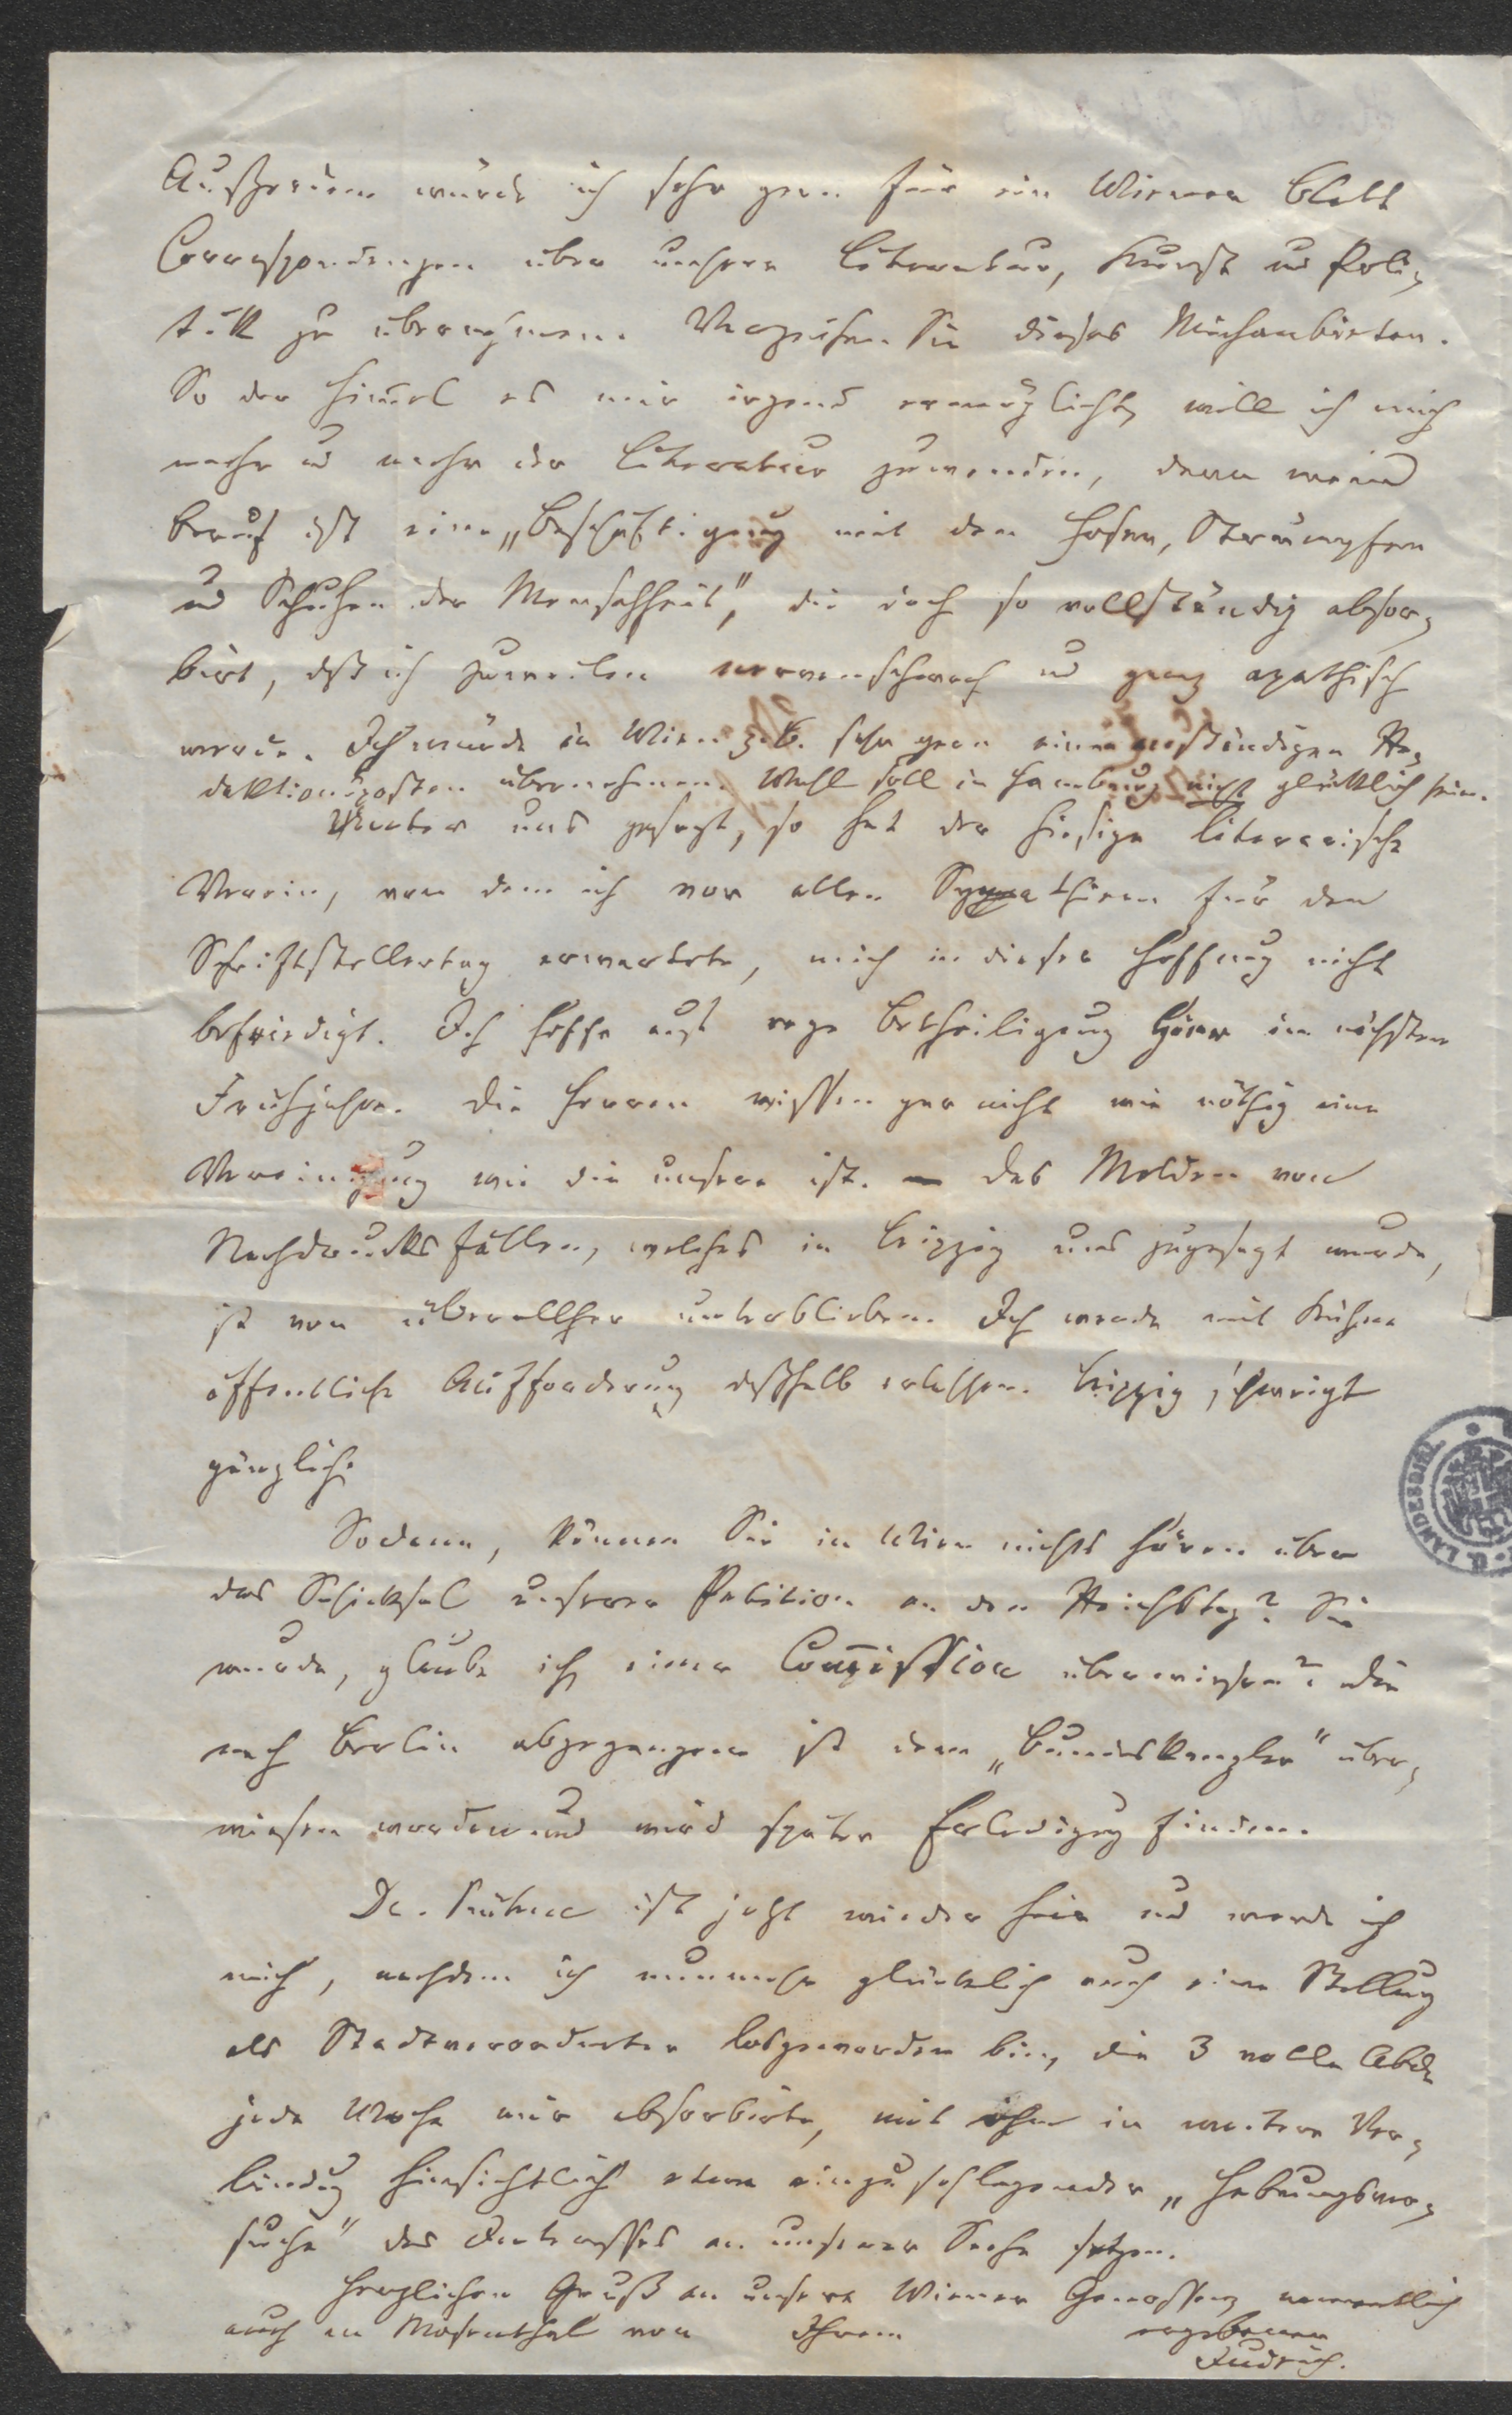 Außerdem würde ich sehr gern für ein Wiener Blatt
Correspondenzen über unsere Literatur, Kunst und Poli-
tik zu übernehmen. Verzeihen Sie dieses Michanbieten.
So der Himmel es mir irgend ermöglicht, will ich mich
mehr und mehr der Literatur zuwenden, denn mein
Beruf ist eine „Beschäftigung mit den Hosen, Strümpfen
und Schuhen der Menschheit", die doch so vollständig absor-
birt, daß ich zuweilen nervenschwach und ganz apathisch
werde. Ich würde in Wien z. B. sehr gern einen anständigen Re-
daktionsposten übernehmen. Wehl soll in Hamburg nicht glücklich sein.
Unter uns gesagt, so hat der hiesige literarische
Verein, von dem ich vor allen Sympathieen für den
Schriftstellertag erwartete, mich in dieser Hoffnung nicht
befriedigt. Ich hoffe auf rege Betheiligung Ihrer im nächsten
Frühjahre. Die Herren wissen gar nicht wie nöthig eine
Vereinigung wie die unsere ist. – Das Melden von
Nachdrucksfällen, welches in Leipzig uns zugesagt wurde,
ist von überallher unterblieben. Ich werde mit Kühne
öffentliche Aufforderung deßhalb erlassen. Leipzig schweigt
gänzlich.
Sodann, können Sie in Wien nichts hören über
das Schicksal unserer Petition an den Reichstag? Sie
wurde, glaube ich, einer Com̅ission überwiesen? Die
nach Berlin abgegangene ist dem „Bundeskanzler" über-
wiesen worden und wird später Erledigung finden.
Dr. Kühne ist jetzt wieder hier und werde ich
mich, nachdem ich nunmehr glücklich auch eine Stellung
als Stadtverordneter losgeworden bin, die 3 volle Abde
jede Woche mir absorbirte, mit ihm in weitere Ver-
bindung hinsichtlich etwa einzuschlagender „Hebungsver-
suche" des Interesses an unserer Sache setzen.
Herzlichen Gruß an unsere Wiener Genossen, namentlich
auch an Mosenthal von Ihrem ergebenen
Judeich.